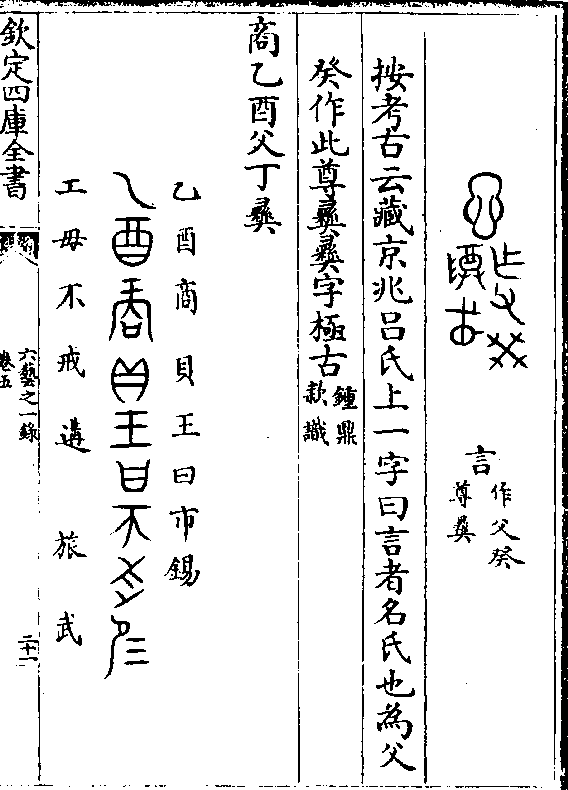 言
作父癸
尊彝
按考古云藏京兆吕氏上一字曰言者名氏也為父
癸作此尊彝彝字極古
鍾鼎
款識
商乙酉父丁彝
乙酉商貝王曰市錫
工毋不戒遘旅武
欽定四庫全書
六藝之一錄
卷五
二十一